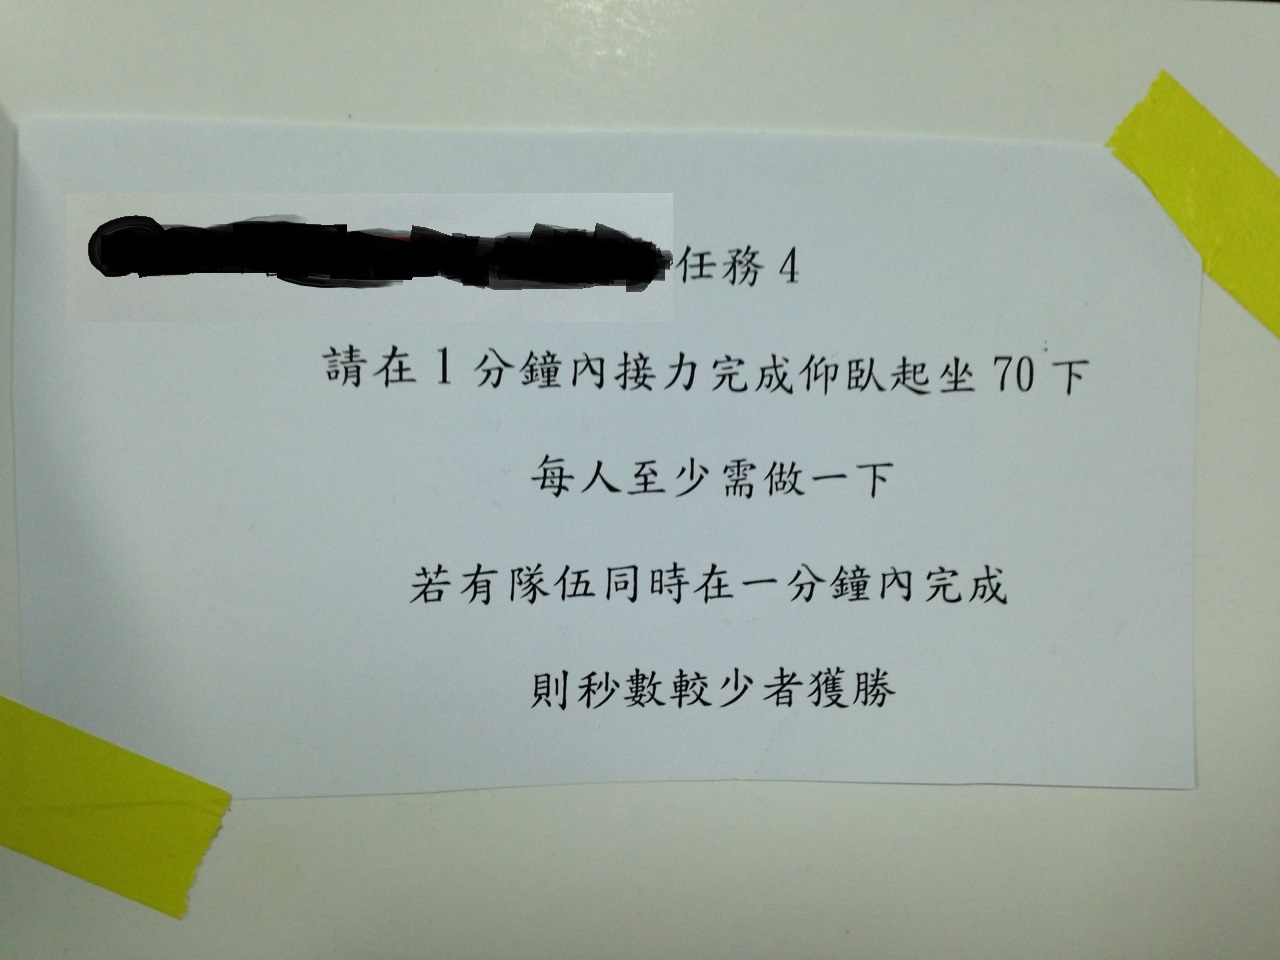 任務 4
請在 1 分鐘內接力完成仰臥起坐 70 下
每人至少需做一下
若有隊伍同時在一分鐘內完成
則秒數較少者獲勝